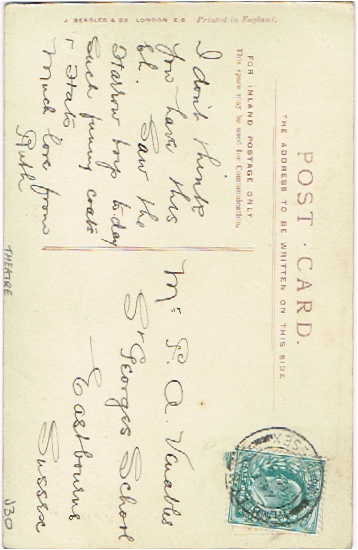 J. BEAGLES & CO. LONDON E.C.
Printed in England.
POST CARD.
THE ADDRESS TO BE WRITTEN ON THIS SIDE
FOR INLAND POSTAGE ONLY
This space may be used for Communication.
I don't think
you have this
El. Saw the
Harrow boys to-day
Such funny coats
+ Hats
Much love from
Ruth
Mr P. A. Venables
St Georges School
Eastbourne
Sussex
THEATRE
J30